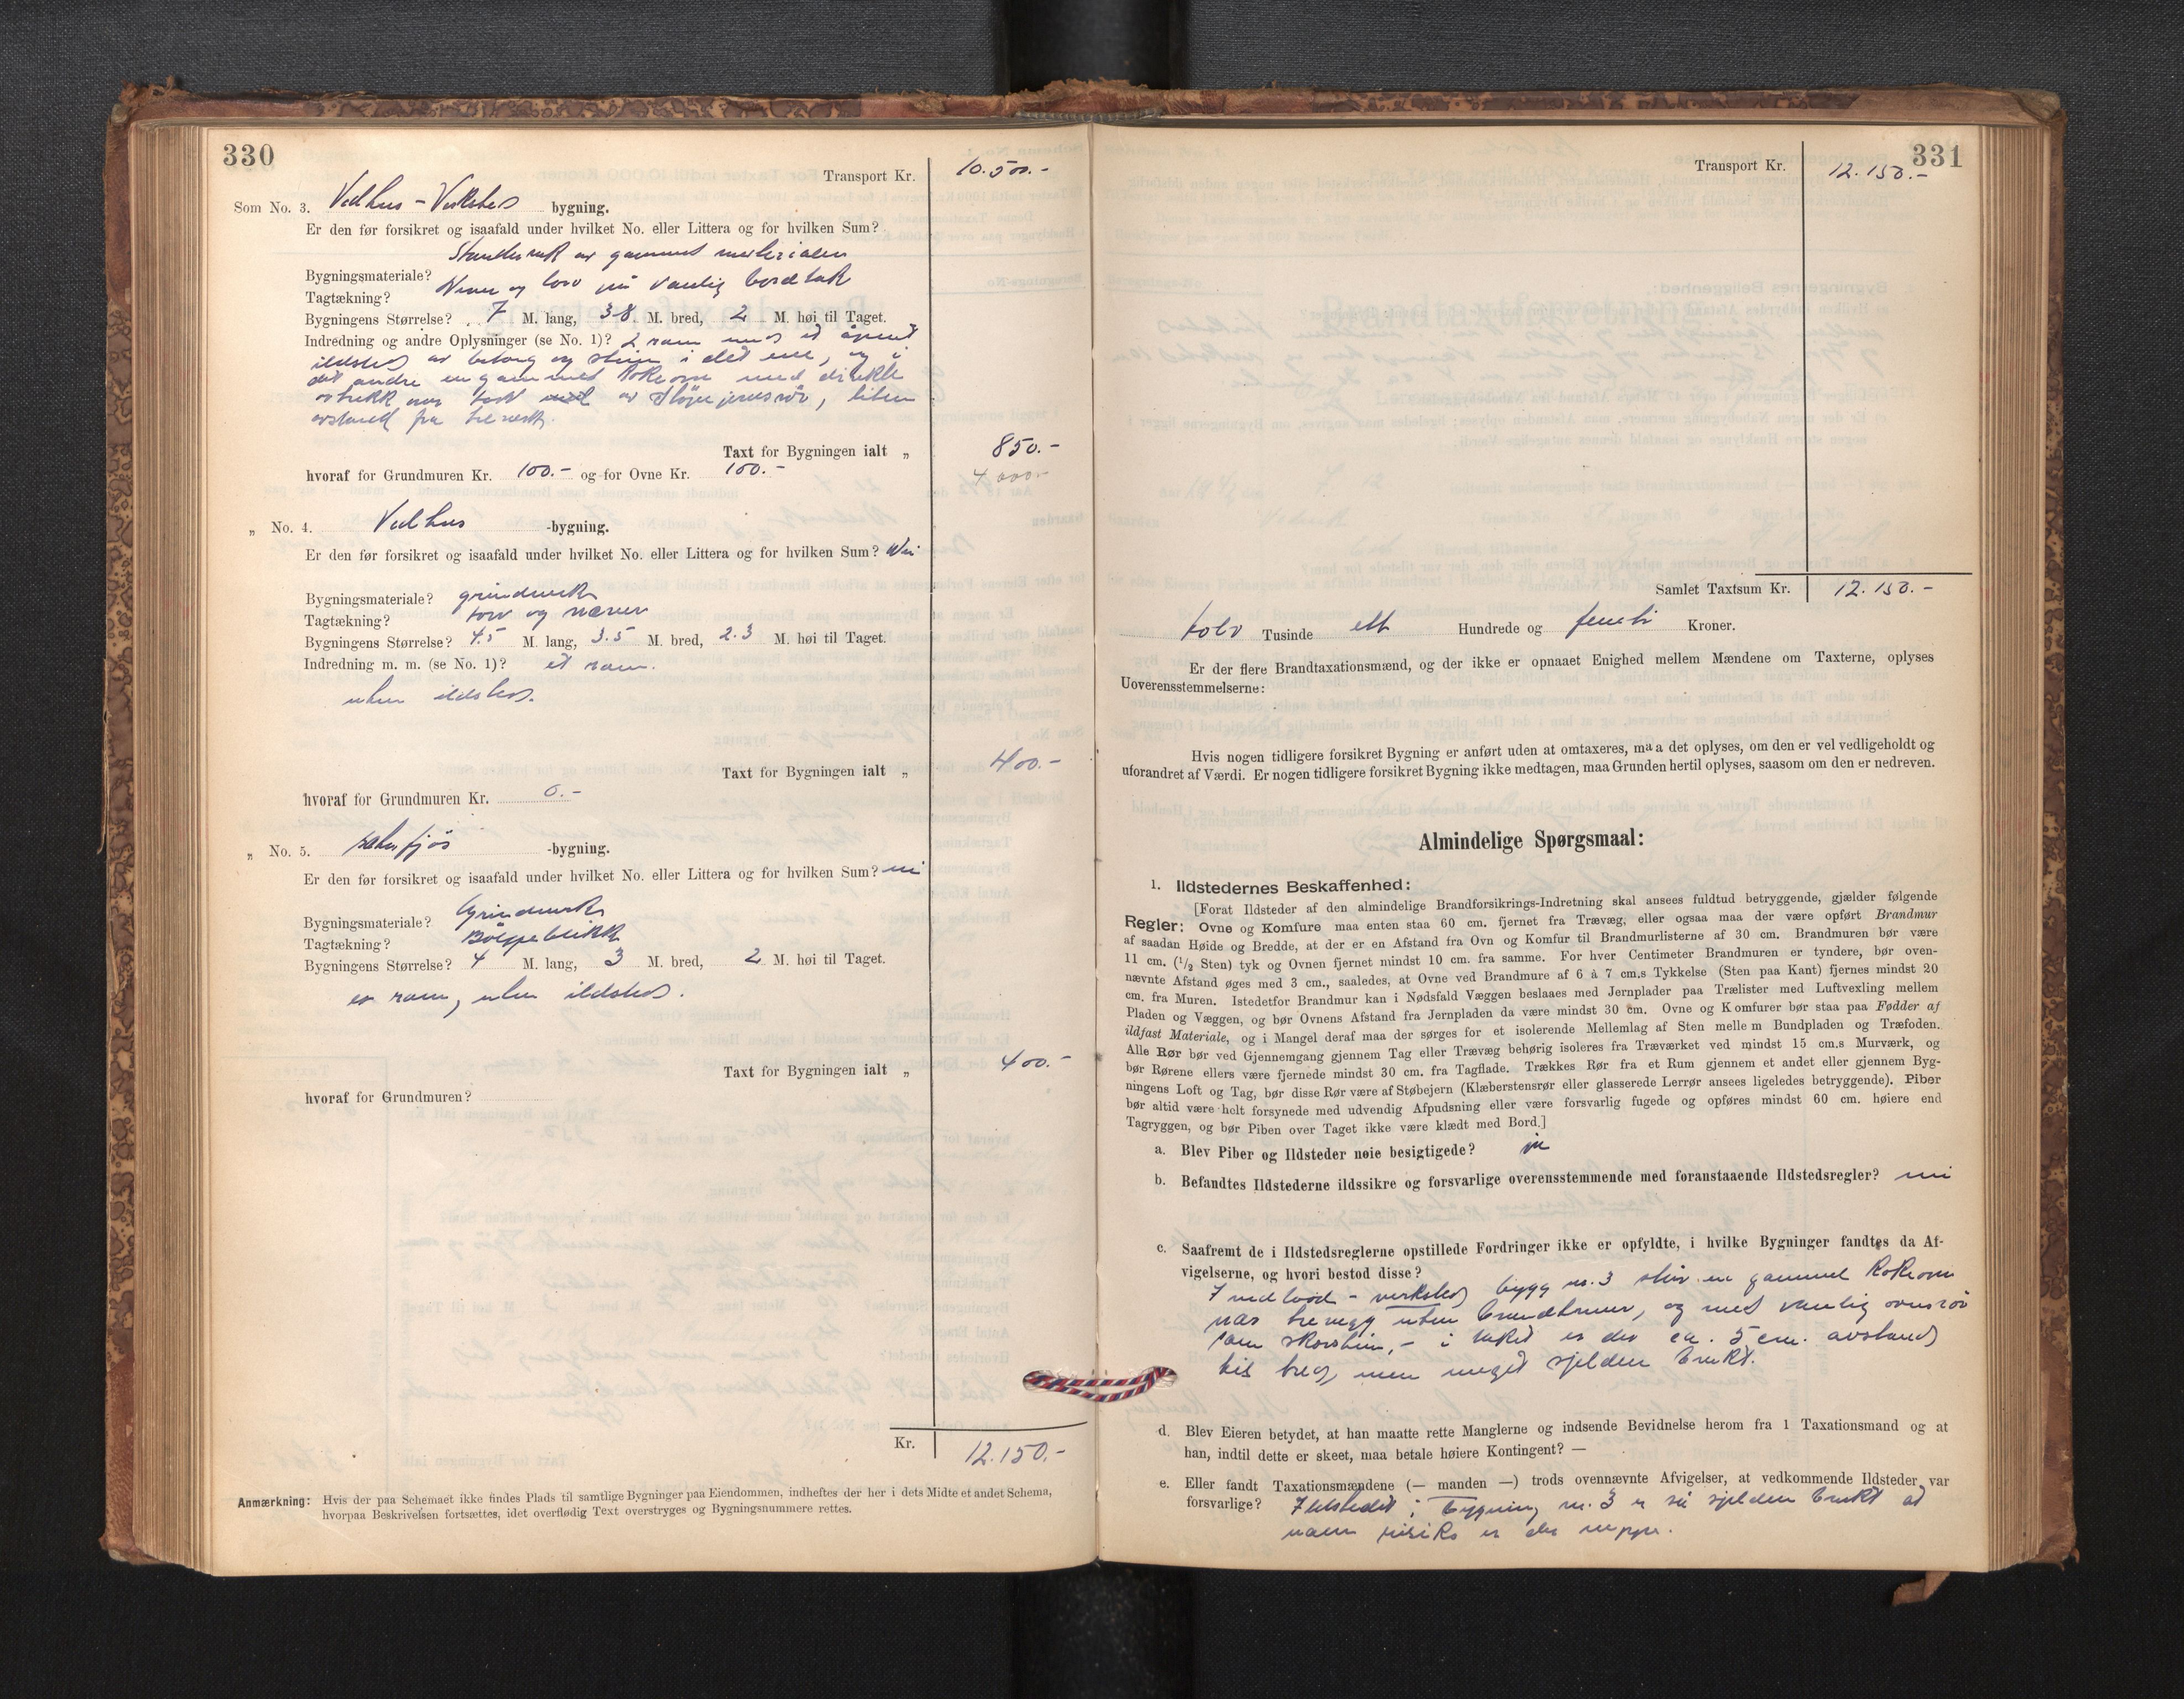 330
Transport Kr. 10.500.-
Som No. 3. Vedhus - Verksted bygning.
Er den før forsikret og isaafald under hvilket No. eller Littera og for hvilken Sum?
Bygningsmateriale? Stenderverk av gammelt materialer
Tagtækning? Never og torv på vanlig bordtak
Bygningens Størrelse? 7 M. lang, 3.8 M. bred, 2 M. høi til Taget.
Indredning og andre Oplysninger (se No. 1)? 2 rom med et åpent
ildsted av betong og stein i det ene, og i
det andre en gammel kokeovn med direkte
avtrekk over tak av støpejernsrör, liten
avstand fra treverk.
Taxt for Bygningen ialt „ 850.-
hvoraf for Grundmuren Kr. 100.- og for Ovne Kr. 100.-
4 000.-
„ No. 4. Vedhus -bygning.
Er den før forsikret og isaafald under hvilket No. eller Littera og for hvilken Sum? Nei
Bygningsmateriale? grindverk
Tagtækning? torv og never
Bygningens Størrelse? 4.5 M. lang, 3.5 M. bred, 2.3 M. høi til Taget.
Indredning m. m. (se No. 1)? et rom.
uten ildsted.
Taxt for Bygningen ialt „ 400.-
hvoraf for Grundmuren Kr. 0.-
„ No. 5. sauefjös -bygning.
Er den før forsikret og isaafald under hvilket No. eller Littera og for hvilken Sum? nei
Bygningsmateriale? Grindverk
Tagtækning? Bölgeblikk
Bygningens Størrelse? 4 M. lang, 3 M. bred, 2 M. høi til Taget.
et rom, uten ildsted.
Taxt for Bygningen ialt „ 400.-
hvoraf for Grundmuren?
Kr. 12.150.-
Anmærkning: Hvis der paa Schemaet ikke findes Plads til samtlige Bygninger paa Eiendommen, indheftes der her i dets Midte et andet Schema,
hvorpaa Beskrivelsen fortsættes, idet overflødig Text overstryges og Bygningsnummere rettes.
331
Transport Kr. 12.150.-
Samlet Taxtsum Kr. 12.150.-
tolv Tusinde ett Hundrede og femti Kroner.
Er der flere Brandtaxationsmænd, og der ikke er opnaaet Enighed mellem Mændene om Taxterne, oplyses
Uoverensstemmelserne:
Hvis nogen tidligere forsikret Bygning er anført uden at omtaxeres, maa det oplyses, om den er vel vedligeholdt og
uforandret af Værdi. Er nogen tidligere forsikret Bygning ikke medtagen, maa Grunden hertil oplyses, saasom om den er nedreven.
Almindelige Spørgsmaal:
1. Ildstedernes Beskaffenhed:
[Forat Ildsteder af den almindelige Brandforsikrings-Indretning skal ansees fuldtud betryggende, gjælder følgende
Regler: Ovne og Komfure maa enten staa 60 cm. fjernet fra Trævæg, eller ogsaa maa der være opført Brandmur
af saadan Høide og Bredde, at der er en Afstand fra Ovn og Komfur til Brandmurlisterne af 30 cm. Brandmuren bør være
11 cm. (1/2 Sten) tyk og Ovnen fjernet mindst 10 cm. fra samme. For hver Centimeter Brandmuren er tyndere, bør oven-
nævnte Afstand øges med 3 cm., saaledes, at Ovne ved Brandmure af 6 à 7 cm.s Tykkelse (Sten paa Kant) fjernes mindst 20
cm. fra Muren. Istedetfor Brandmur kan i Nødsfald Væggen beslaaes med Jernplader paa Trælister med Luftvexling mellem
Pladen og Væggen, og bør Ovnens Afstand fra Jernpladen da være mindst 30 cm. Ovne og Komfurer bør staa paa Fødder af
ildfast Materiale, og i Mangel deraf maa der sørges for et isolerende Mellemlag af Sten mellem Bundpladen og Træfoden.
Alle Rør bør ved Gjennemgang gjennem Tag eller Trævæg behørig isoleres fra Træværket ved mindst 15 cm.s Murværk, og
bør Rørene ellers være fjernede mindst 30 cm. fra Tagflade. Trækkes Rør fra et Rum gjennem et andet eller gjennem Byg-
ningens Loft og Tag, bør disse Rør være af Støbejern (Klæberstensrør eller glasserede Lerrør ansees ligeledes betryggende). Piber
bør altid være helt forsynede med udvendig Afpudsning eller være forsvarlig fugede og opføres mindst 60 cm. høiere end
Tagryggen, og bør Piben over Taget ikke være klædt med Bord.]
a. Blev Piber og Ildsteder nøie besigtigede? ja
b. Befandtes Ildstederne ildssikre og forsvarlige overensstemmende med foranstaaende Ildstedsregler? nei
c. Saafremt de i Ildstedsreglerne opstillede Fordringer ikke er opfyldte, i hvilke Bygninger fandtes da Af-
vigelserne, og hvori bestod disse?
I vedbod - verksted bygg nr. 3 står en gammel kokeovn
nær trevegg uten brandmur, og med vanlig ovnsrör
som skorstein, - i taket er der ca. 5 cm. avstand
til tre, men meget sjelden brukt.
d. Blev Eieren betydet, at han maatte rette Manglerne og indsende Bevidnelse herom fra 1 Taxationsmand og at
han, indtil dette er skeet, maa betale høiere Kontingent? —
e. Eller fandt Taxationsmændene (— manden —) trods ovennævnte Afvigelser, at vedkommende Ildsteder var
forsvarlige? Ildstedet i bygning nr. 3 er så sjelden brukt at
noen risiko er der neppe.